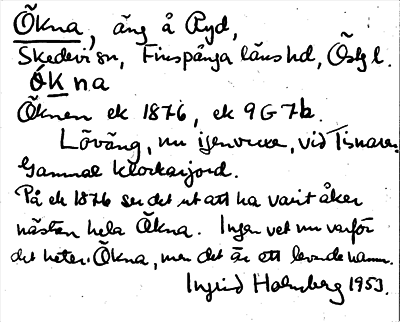 Ökna, äng å Ryd,
Skedevi sn, Finspånga läns hd, Östg l.
ÓKna
Öknen ek 1876, ek 9G7b.
Löväng, nu igenvuxen, vid Tisnaren.
Gammal klockarjord.
På ek 1876 ser det ut att ha varit åker
nästan hela Ökna. Ingen vet nu varför
det heter Ökna, men det är ett levande namn.
Ingrid Holmberg 1953.